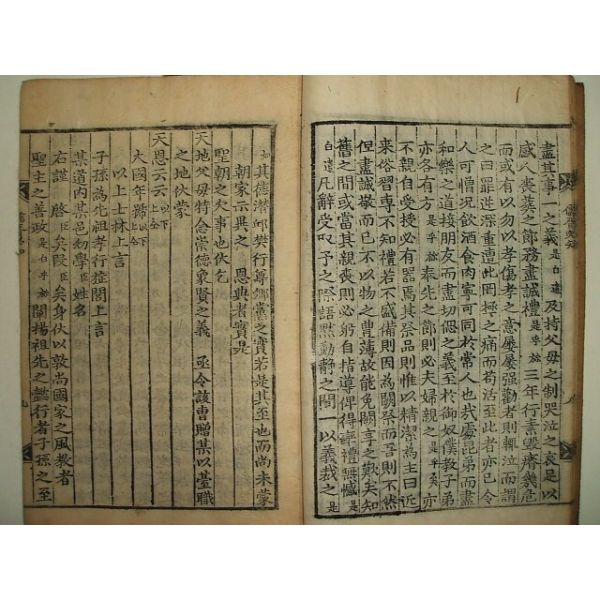 盡其事一之義是白遣及持父母之制哭泣之哀足以
感人喪葬之節務盡誠禮是乎旀三年行素毁瘠幾危
而或有以勿以孝傷孝之意屢屢强勸者則輒泣而謂
之曰罪逆深重遭此罔極之痛而苟活至此者亦已令
人可憎况飲酒食肉寧可同於常人也哉處昆弟而盡
和樂之道接朋友而盡切偲之義至於御奴僕教子弟
亦各有方是乎旀奉先之節則必夫婦親之是乎矣亦
不親自受授必有器焉其祭品則惟以精潔爲主曰近
來俗習專不知禮若不盛備則因爲闕祭而吾則不然
但盡誠敬而已不以物之豊薄故能免闕享之歎矣知
舊之間或當其親喪則必躬自指導俾得禮無憾是
白遣凡辭受取予之際語默動静之間一以義裁之是
如其德潜邱樊行尊鄉黨之實若是其至也而尚未蒙
朝家示異之 恩典者實是
聖朝之欠事也伏乞
天地父母特念崇德象賢之義 亟令該曹贈某以䑓職
之地伏蒙
天恩云云以下上仝
大國年號上仝以下
以上士林上言
子孫爲先祖孝行㫌閭上言
某道内某邑幼學臣姓名
右謹 啓臣矣段臣矣身伏以敦尚國家之風教者
聖主之善政是白乎旀闡揚祖先之懿行者子孫之至